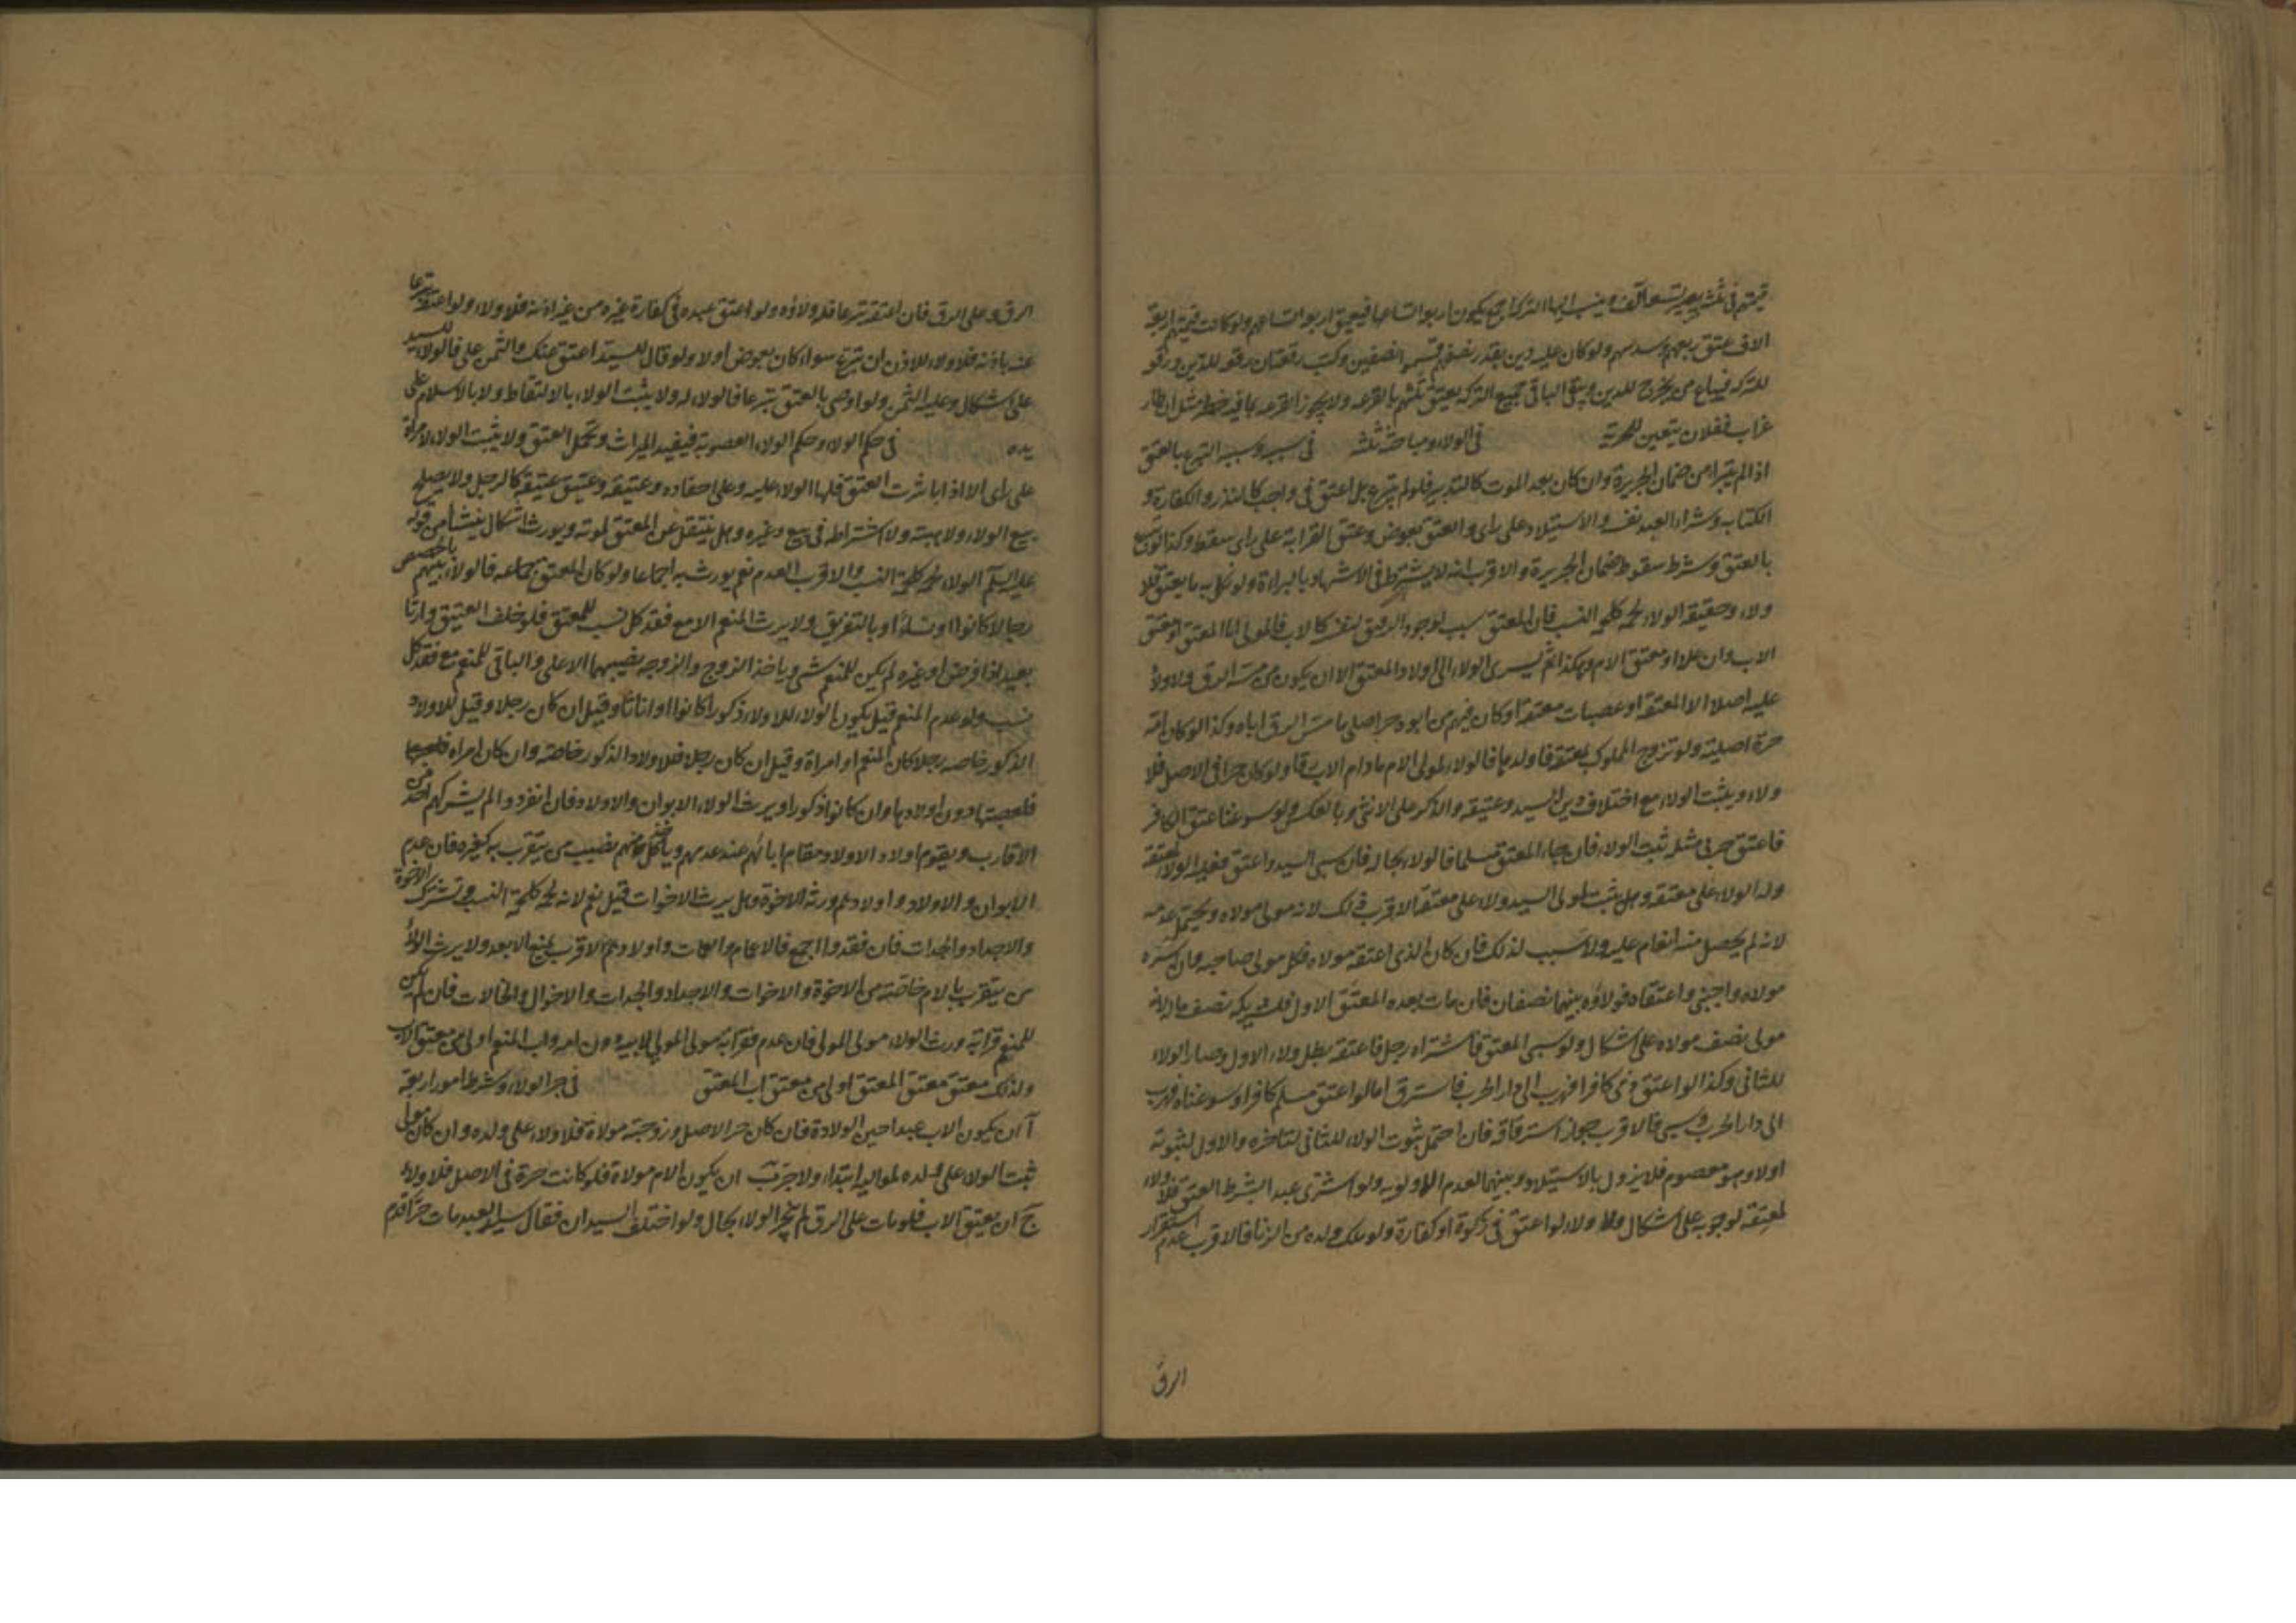 قيمتهم في ثلثه يصير تسعة آلاف وينسب اليها التركة اجمع يكون اربعة اتساعها فيعتق اربعة اتساعهم ولو كانت قيمتهم اربعة
الاف عتق ربعهم وسدسهم ولو كان عليه دين بقدر نصفهم قسموا نصفين وكتب رقعتان رقعة للدين ورقعة
للتركه فيباع من يخرج للدين ويبقى الباقي جميع التركه يعتق ثلثهم بالقرعه ولا يجوز القرعه بما فيه خطر مثل ان طار
غراب ففلان يتعين للحرية في الولاء ومباحثه ثلثه في سببه وسببه التبرع بالعتق
اذا لم يتبرا من ضمان الجريرة وان كان بعد الموت كالتدبير فلو لم يتبرع بل اعتق في واجب كالنذر والكفارة و
الكتابه وشراء العبد نفسه والاستيلاد على راى والعتق بعوض وعتق القرابة على راى سقط وكذا لو تبرع
بالعتق وشرط سقوط ضمان الجريرة والاقرب انه لا يشترط في الاشهاد بالبراءة ولو نكل به ما يعتق فلا
ولاء وحقيقة الولاء لحمه كلحمه النسب فان المعتق سبب لوجود الرقيق لنفسه كالاب فالمولى اما المعتق او معتق
الاب وان علا او معتق الام وهكذا ثم يسرى الولاء الى اولاد المعتق الا ان يكون من مسه الرق فلا ولاء
عليه اصلا الا لمعتقه او عصبات معتقه او كان فيهم من ابوه حر اصلى ما مس الرق اباه وكذا لو كان امه
حرة اصلية ولو تزوج المملوك بمعتقه فاولدها فالولاء لمولى الام ما دام الاب رقا ولو كان حرا في الاصل فلا
ولاء ويثبت الولاء مع اختلاف دين السيد وعتيقه والذكر على الانثى وبالعكس ولو سوغنا عتق الكافر
فاعتق حربى مثله ثبت الولاء فان جاء المعتق مسلما فالولاء بحاله فان سبى السيد واعتق فعليه الولاء لمعتقه
وله الولاء على معتقه وهل يثبت لمولى السيد ولاء على معتقه الاقرب ذلك لانه مولى مولاه ويحتمل عدمه
لانه لم يحصل منه انعام عليه ولا سبب لذلك فان كان الذى اعتقه مولاه فكل مولى صاحبه فان اسره
مولاه واجنبى واعتقاه فولاؤه بينهما نصفان فان مات بعده المعتق الاول فلشريكه نصف ماله لانه
مولى نصف مولاه على اشكال ولو سبى المعتق فاشتراه رجل فاعتقه بطل ولاء الاول وصار الولاء
للثانى وكذا لو اعتق ذمى كافرا فهرب الى دار الحرب فاسترق اما لو اعتق مسلم كافرا وسوغناه فهرب
الى دار الحرب وسبى فالاقرب جواز استرقاقه فان احتمل ثبوت الولاء للثانى لتاخره والاول لثبوته
اولا وهو معصوم فلا يزول بالاستيلاء وبينهما لعدم الاولويه ولو اشترى عبدا بشرط العتق فلا ولاء
لمعتقه لوجوبه على اشكال ولا ولاء لو اعتق في زكوة او كفارة ولو ملك ولده من الزنا فالاقرب عدم استقرار
الرق
الرق وعلى الرق فان اعتقه تبرعا فله ولاؤه ولو اعتق عبده في كفارة غيره من غير اذنه فلا ولاء ولو اعتق تبرعا
عنه باذنه فلا ولاء للاذن ان تبرع سواء كان بعوض اولا ولو قال للسيد اعتق عنك والثمن على فالولاء للسيد
على اشكال وعليه الثمن ولو اوصى بالعتق تبرعا فالولاء له ولا يثبت الولاء بالالتقاط ولا بالاسلام على
يده في حكم الولاء وحكم الولاء العصوبة فيفيد الميراث وتحمل العتق ولا يثبت الولاء لامراة
على راى الا اذا باشرت العتق فلها الولاء عليه وعلى احفاده وعتيقه وعتيق عتيقه كالرجل ولا يصح
بيع الولاء ولا هبته ولا اشتراطه في بيع وغيره وهل ينتقل عن المعتق لموته ويورث اشكال ينشا من قوله
عليه السلم الولاء لحمه كلحمة النسب والاقرب العدم نعم يورث به اجماعا ولو كان المعتق جماعه فالولاء بينهم بالحصص
رجالا كانوا او نساء او بالتفريق ولا يرث المنعم الا مع فقد كل نسب للمعتق فلو خلف العتيق وارثا
بعيدا ذا فرض او غيره لم يكن للمنعم شى وياخذ الزوج والزوجه نصيبهما الاعلى والباقى للمنعم مع فقد كل
نسب ولو عدم المنعم قيل يكون الولاء للاولاد ذكورا كانوا او اناثا وقيل ان كان رجلا وقيل للاولاد
الذكور خاصه رجلا كان المنعم او امراة وقيل ان كان رجلا فللاولاد الذكور خاصة وان كان امراة
فلعصبتها دون اولادها وان كانوا ذكورا ويرث الولاء الابوان والاولاد فان انفردوا لم يشركهم احد من
الاقارب ويقوم اولاد الاولاد مقام ابائهم عند عدمهم وياخذ كل منهم نصيب من يتقرب به كغيره فان عدم
الابوان والاولاد واولادهم ورثه الاخوة وهل يرث الاخوات قيل نعم لانه لحمة كلحمة النسب وتشترك الاخوة
والاجداد والجدات فان فقدوا اجمع فالاعمام والعمات واولادهم الاقرب يمنع الابعد ولا يرث الولاء
من يتقرب بالام خاصة من الاخوة والاخوات والاجداد والجدات والاخوال والخالات فان لم يكن
للمنعم قرابة ورث الولاء مولى المولى فان عدم فقرابة مولى المولى لابيه دون امه واب المنعم اولى من معتق الاب
ولذلك معتق معتق المعتق اولى من معتق اب المعتق في جر الولاء وشرطه امور اربعة
آ ان يكون الاب عبدا حين الولادة فان كان حر الاصل وزوجته مولاة فلا ولاء على ولده وان كان مولى
ثبت الولاء على ولده لمواليه ابتداء ولا جر ب ان يكون الام مولاة فلو كانت حرة في الاصل فلا ولاء
ج ان يعتق الاب فلو مات على الرق لم ينجر الولاء بحال ولو اختلف السيدان فقال سيد العبد مات حرا